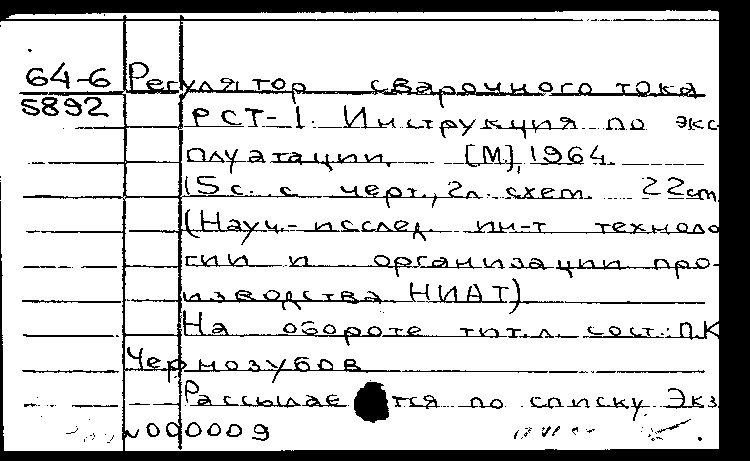 64-6 Регулятор сварочного тока
5892
РСТ-1. Инструкция по экс
плуатации. [М], 1964.
15 с. с черт., 2 л. схем. 22 cm
(Науч.-исслед. ин-т техноло
гии и организации про-
изводства НИАТ)
На обороте тит.л. сост.: П.К
Чернозубов
Рассылается по списку. Экз
№000009